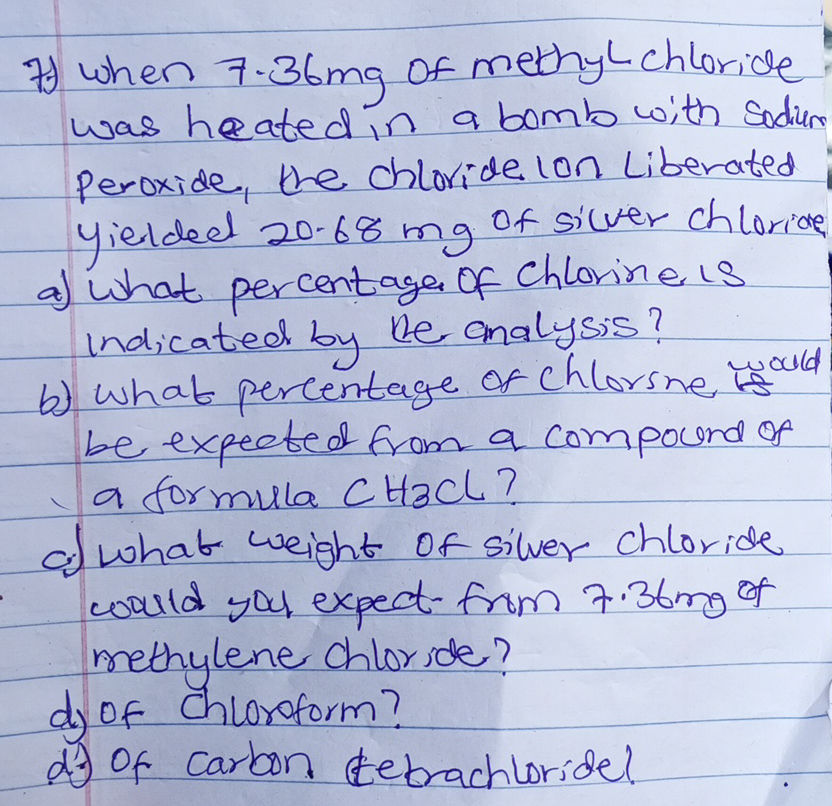 7) When 7.36mg of methyl chloride
was heated in a bomb with Sodium
peroxide, the chloride ion Liberated
yielded 20.68 mg of silver chloride
a) What percentage of Chlorine is
indicated by the analysis?
b) What percentage of chlorine would
be expected from a compound of
a formula CH3CL?
c) What weight of silver chloride
would you expect from 7.36mg of
methylene chloride?
d) Of Chloroform?
d) Of carbon tetrachloride?